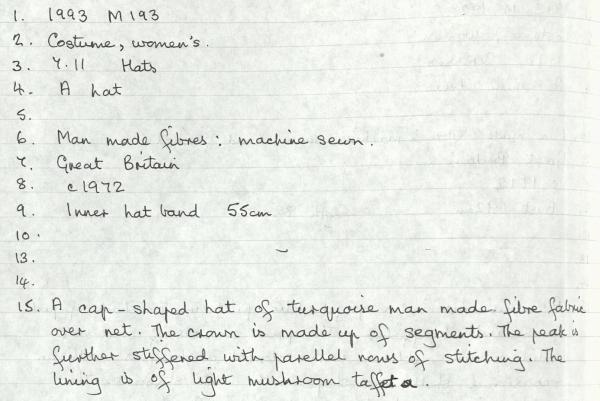 1. 1993 M 193
2. Costume, women's.
3. 7.11 Hats
4. A hat
5.
6. Man made fibres : machine sewn.
7. Great Britain
8. c1972
9. Inner hat band 55cm
10.
13.
14.
15. A cap-shaped hat of turquoise man made fibre fabric
over net. The crown is made up of segments. The peak is
further stiffened with parellel rows of stitching. The
lining is of light mushroom taffeta.